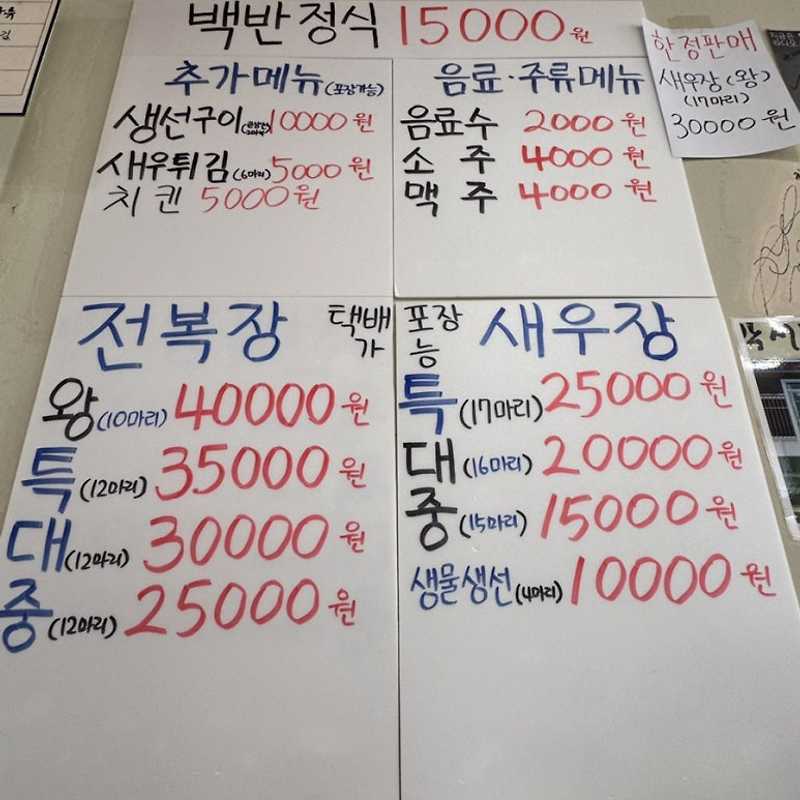 백반정식 15000원
한정판매
새우장(왕)
(17마리)
30000원
추가메뉴(포장가능)
생선구이 10000원
새우튀김(6마리) 5000원
치킨 5000원
음료·주류메뉴
음료수 2000원
소주 4000원
맥주 4000원
전복장 택배가
왕(10마리) 40000원
특(12마리) 35000원
대(12마리) 30000원
중(12마리) 25000원
포장능 새우장
특(17마리) 25000원
대(16마리) 20000원
중(15마리) 15000원
생물생선(4마리) 10000원